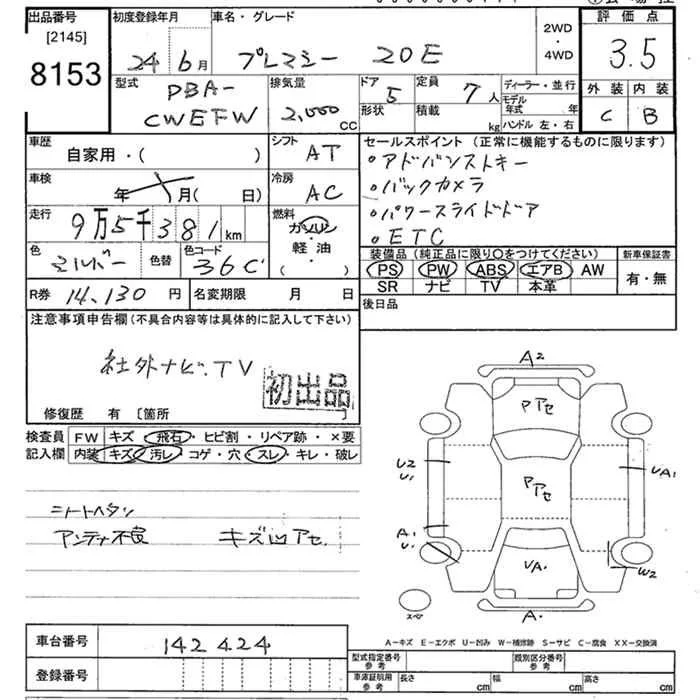 出品番号
[2145]
8153
初度登録年月
24年 6月
車名・グレード
プレマシー 20E
2WD
・
4WD
評価点
3.5
外装 内装
C B
型式
DBA-
CWEFW
排気量
2,000
CC
ドア 5
形状
定員 7人
積載 kg
ディーラー・並行
モデル年式 年
ハンドル 左・右
車歴
自家用・( )
シフト
AT
車検
年 月(日)
冷房
AC
走行
9万5千381km
燃料
ガソリン
軽油
・
色
シルバー
色替
色コード
36C
R券 14,130円
名変期限 月 日
セールスポイント(正常に機能するものに限ります)
・アドバンストキー
・バックカメラ
・パワースライドドア
・ETC
装備品(純正品に限り○をつけてください)
新車保証書
PS PW ABS エアB AW
有・無
SR ナビ TV 本革
後日品
注意事項申告欄(不具合内容等は具体的に記入して下さい)
社外ナビ.TV
初出品
修復歴 有 〔箇所 〕
検査員
記入欄
FW キズ・飛石・ヒビ割・リペア跡・×要
内装 キズ・汚レ・コゲ・穴・スレ・キレ・破レ
シートヘタリ
アンテナ不良 キズ凹アセ.
A2
Pアセ
U2
U1
Pアセ
UA1
A1
U1
UA1
W2
スペ
A1
A-キズ E-エクボ U-凹ミ W-補修跡 S-サビ C-腐食 XX-交換済
車台番号
142424
登録番号
型式指定番号
参考
類別区分番号
参考
車庫証明用
参考
長さ cm
幅 cm
高さ cm